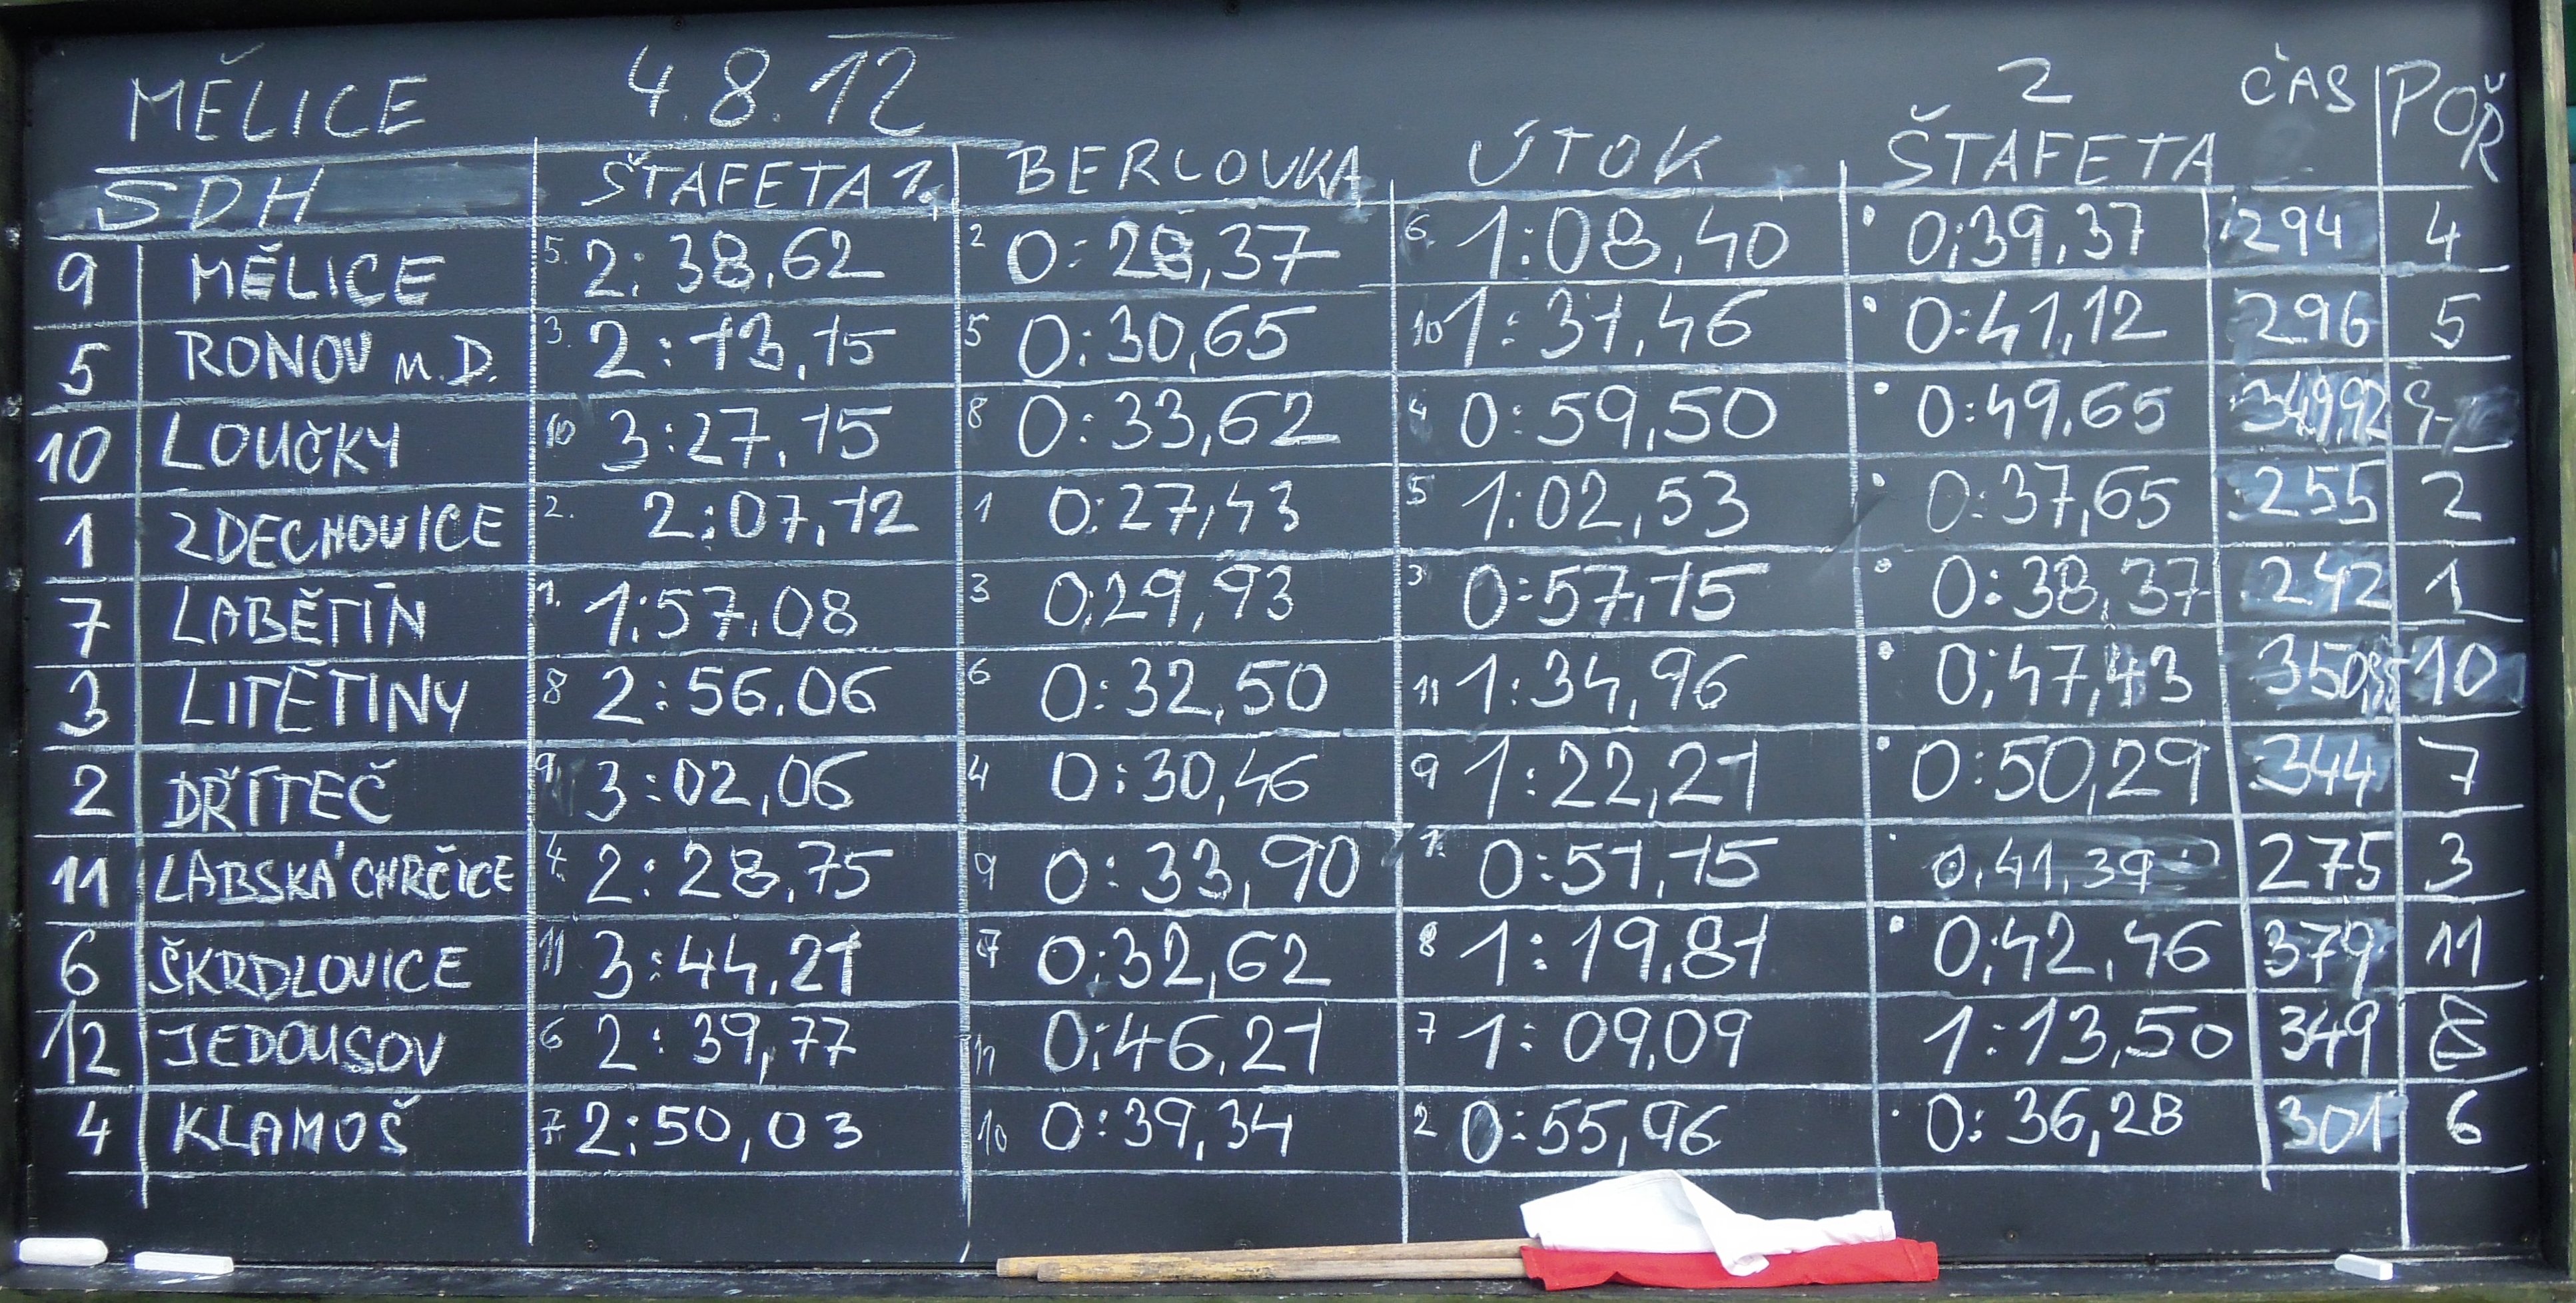 MĚLICE 4.8.12
SDH ŠTAFETA 1. BERLOVKA ÚTOK 2 ŠTAFETA ČAS POŘ
9 MĚLICE 5. 2:38,62 2 0:28,37 6. 1:08,40 0:39,37 294 4
5 RONOV n.D. 3. 2:13,15 5 0:30,65 10 1:31,46 0:41,12 296 5
10 LOUČKY 10 3:27,15 8 0:33,62 4 0:59,50 0:49,65 349,92 9
1 ZDECHOVICE 2. 2:07,12 1 0:27,43 5 1:02,53 0:37,65 255 2
7 LABĚTÍN 1. 1:57,08 3 0:29,93 3 0:57,15 0:38,37 242 1
3 LITĚTINY 8 2:56.06 6 0:32,50 11 1:34,96 0:47,43 350,95 10
2 DŘÍTEČ 9 3:02,06 4 0:30,46 9 1:22,21 0:50,29 344 7
11 LABSKÁ CHRČICE 4. 2:28,75 9 0:33,90 1. 0:51,15 0,41,39 275 3
6 ŠKRDLOVICE 11 3:44,21 7 0:32,62 8 1:19,81 0:42,46 379 11
12 JEDOUSOV 6 2:39,77 11 0:46,21 7 1:09,09 1:13,50 349 8
4 KLAMOŠ 7 2:50,03 10 0:39,34 2 0:55,96 0:36,28 301 6